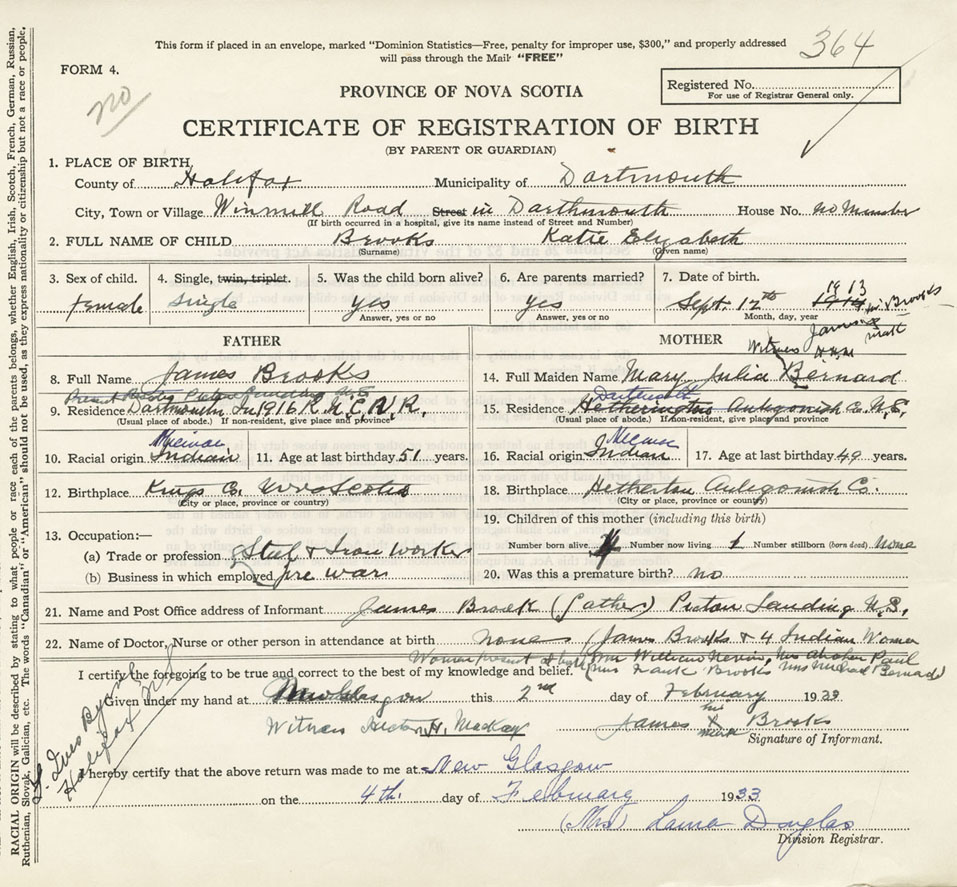 This form if placed in an envelope, marked "Dominion Statistics—Free, penalty for improper use, $300," and properly addressed
will pass through the Mail "FREE"
364
FORM 4.
no
PROVINCE OF NOVA SCOTIA
Registered No.
For use of Registrar General only.
CERTIFICATE OF REGISTRATION OF BIRTH
(BY PARENT OR GUARDIAN)
1. PLACE OF BIRTH,
County of Halifax Municipality of Dartmouth
City, Town or Village Winmill Road Street in Darthmouth House No. no Number
(If birth occurred in a hospital, give its name instead of Street and Number)
2. FULL NAME OF CHILD Brooks Katie Elizabeth
(Surname) (Given name)
3. Sex of child. 4. Single, twin, triplet. 5. Was the child born alive? 6. Are parents married? 7. Date of birth.
female single yes yes Sept. 12th 1914 1913
Answer, yes or no Answer, yes or no Month, day, year
James X Brooks
his mark
Witness H.H.M
FATHER MOTHER
8. Full Name James Brooks
14. Full Maiden Name Mary Julia Bernard
9. Residence Dartmouth In 1916
(Usual place of abode.) If non-resident, give place and province
15. Residence Dartmouth Hetherington Antigonish Co. N.S.
(Usual place of abode.) If non-resident, give place and province
10. Racial origin Micmac Indian 11. Age at last birthday 51 years.
16. Racial origin Micmac Indian 17. Age at last birthday 49 years.
12. Birthplace Kings Co. Nova Scotia
(City or place, province or country)
18. Birthplace Hetherton Antigonish Co.
(City or place, province or country)
13. Occupation:—
(a) Trade or profession Steel & Iron Worker
(b) Business in which employed pre war
19. Children of this mother (including this birth)
Number born alive 4 Number now living 1 Number stillborn (born dead) none
20. Was this a premature birth? no
21. Name and Post Office address of Informant James Brook (father) Pictou Landing N.S.
22. Name of Doctor, Nurse or other person in attendance at birth none (James Brooks & 4 Indian Women
Women present at birth Mrs William Nevin, Mrs Paul
Mrs Frank Brooks Mrs Michael Bernard
I certify the foregoing to be true and correct to the best of my knowledge and belief.
Given under my hand at New Glasgow this 2nd day of February 1933
Witness Hector H. MacKay James X Brooks
his mark
Signature of Informant.
I hereby certify that the above return was made to me at New Glasgow
on the 4th. day of February 1933
(Mrs) Lama Douglas
Division Registrar.
Halifax N.S.
RACIAL ORIGIN will be described by stating to what people or race each of the parents belongs, whether English, Irish, Scotch, French, German, Russian,
Ruthenian, Slovak, Galician, etc. The words "Canadian" or "American" should not be used, as they express nationality or citizenship but not a race or people.